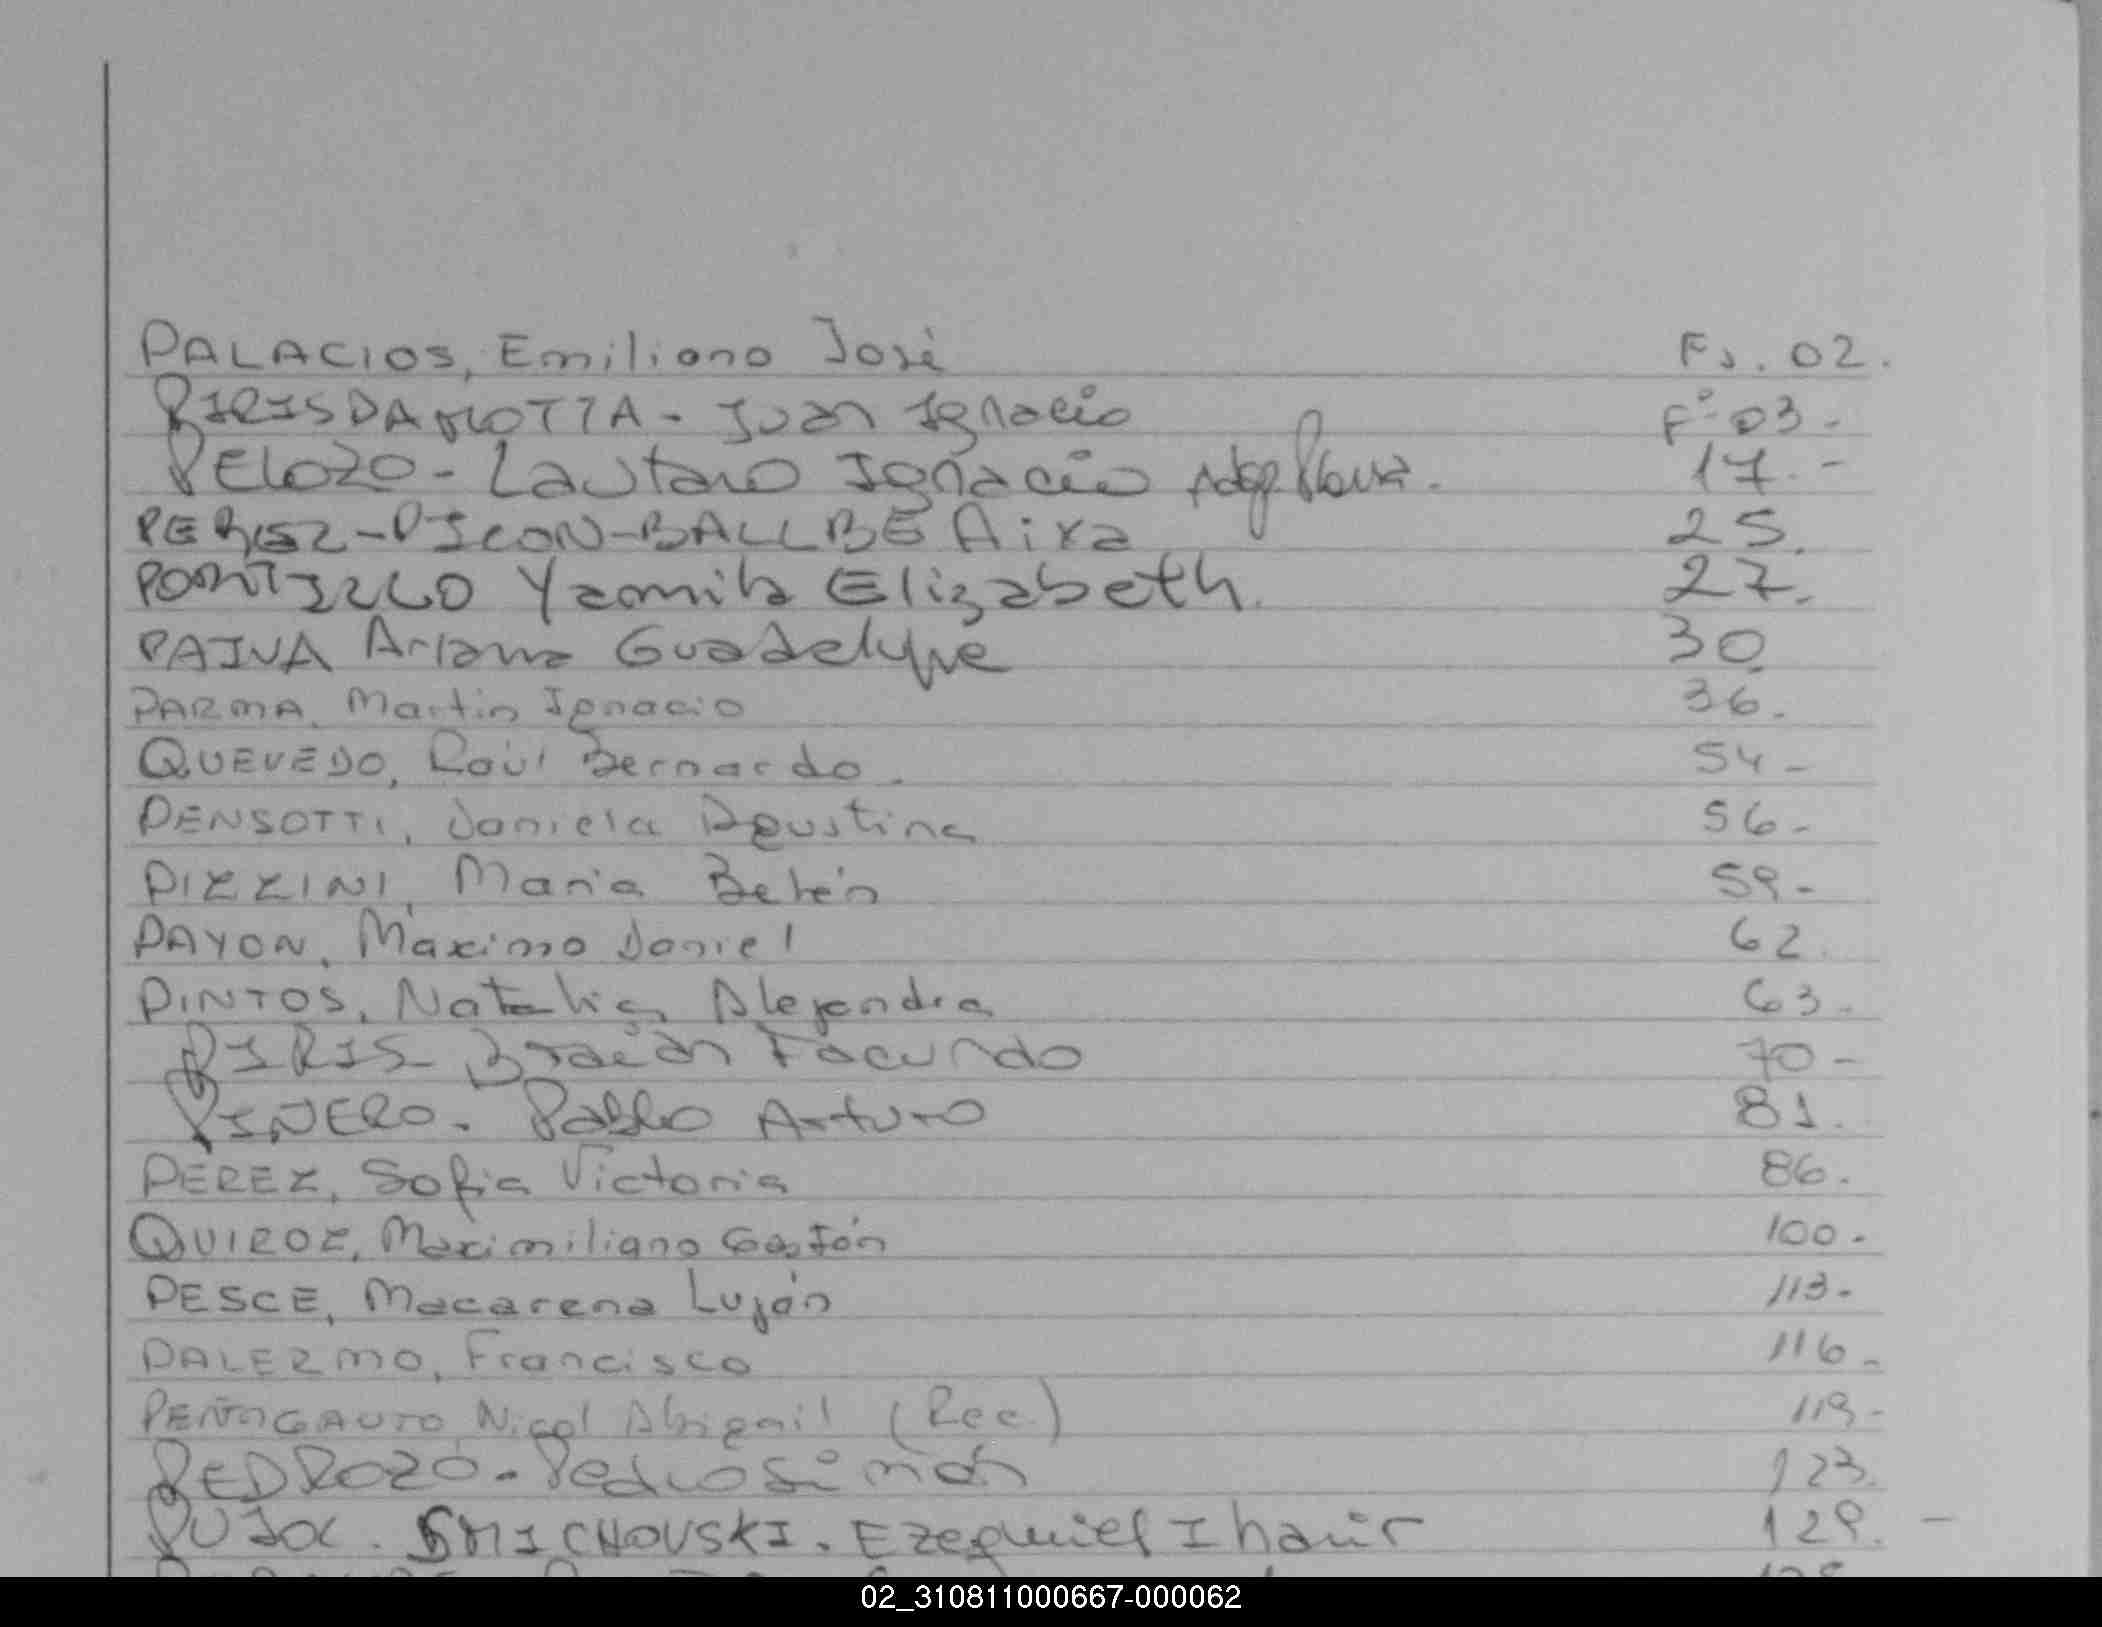 PALACIOS, Emiliano José Fs. 02.
PIRISDAMOTTA - Juan Ignacio Fº 03.-
PELOZO - Lautaro Ignacio 17.-
PEREZ-PICON-BALLBE Aixa 25.
PORTILLO Yamila Elizabeth. 27.
PAIVA Ariana Guadelupe 30.
PARMA, Martin Ignacio 36.
QUEVEDO, Raúl Bernardo. 54-
PENSOTTI, Daniela Agustina 56-
PIZZINI, Maria Belén 59-
PAYON, Máximo Daniel 62.
PINTOS, Natalia Alejandra 63.
PIRIS - Braian Facundo 70-
PINERO. Pablo Arturo 81.
PEREZ, Sofia Victoria 86.
QUIROZ, Maximiliano Gastón 100.
PESCE, Macarena Luján 113.
PALERMO, Francisco 116-
Nicol Abigail (Rec.) 119-
PEDROZO - Pedro Simón 123.
PUJOL. SMICHOVSKI. Ezequiel Ihair 129. -
02_310811000667-000062